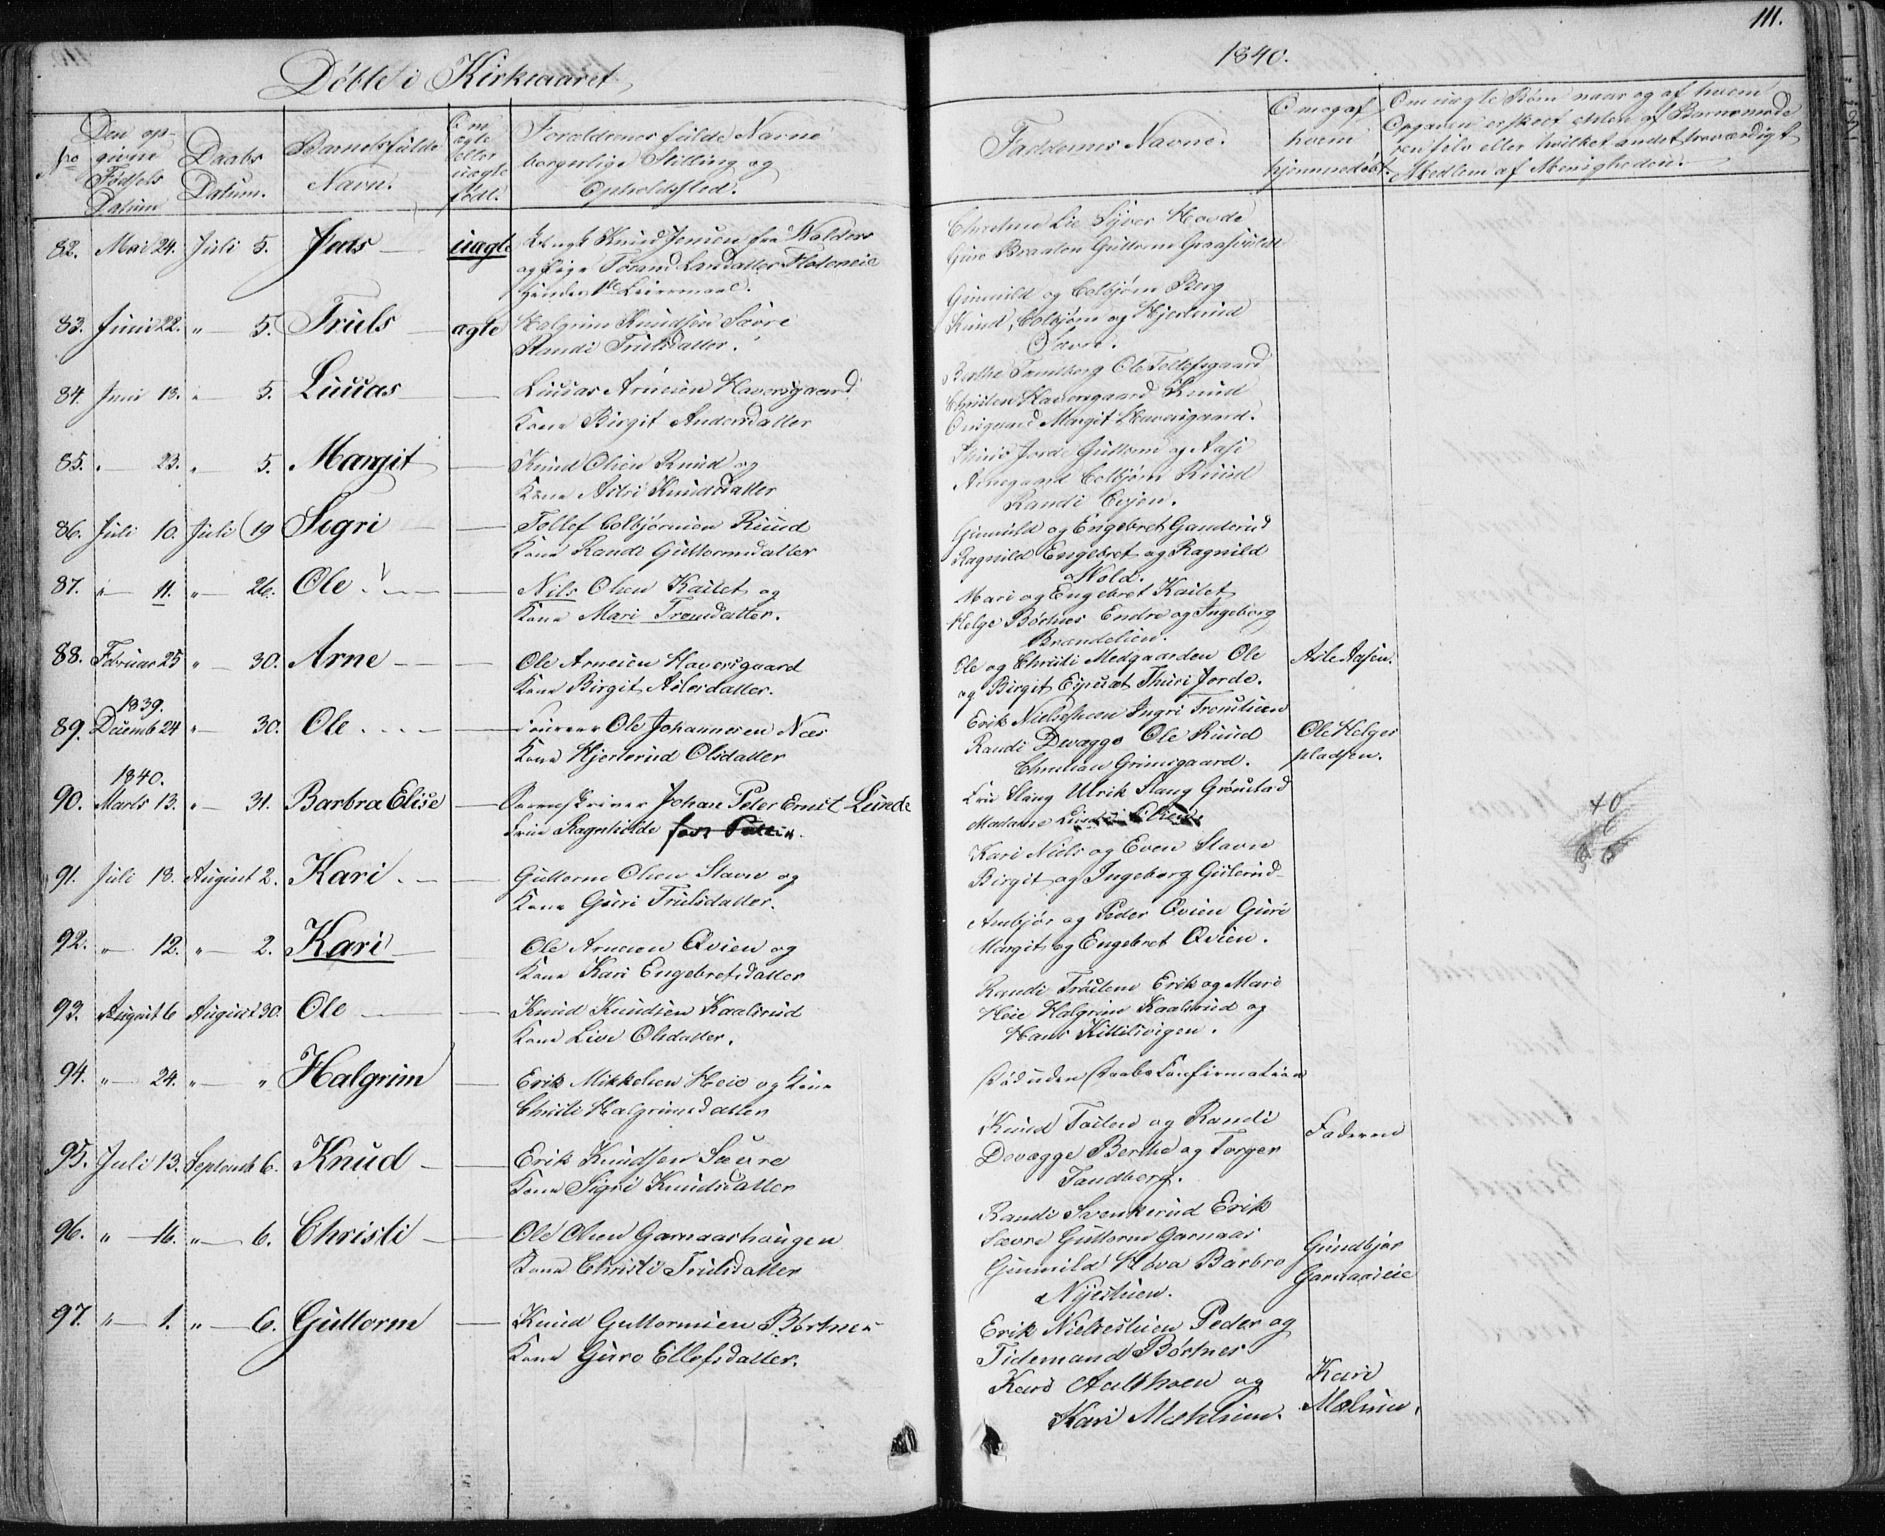 Döbte i Kirkeaaret
1840.
111.
No
Den op-
givne
Fødsels
Datum
Daabs
Datum.
Barnets fulde
Navn.
Om
ægte
eller
uægte
født.
Forældrenes fulde Navne
borgerlige Stilling og
Opholdssted.
Faddernes Navne.
Om og af
hvem
hjemmedøbt.
Om uægte Børn naar og af hvem
Opgaven er skeet enten af Barnemode
ren selv eller hvilket andet troværdigt
Medlem af Menigheden.
82. Mai 24. Juli 5. uægte Ungk Knud Jensen fra Walders
og Pige Torand Larsdatter
Leiermaal.
Sÿver Hovde
Guro Braaten Guttorm
83. Juni 22. " 5. Truls ægte Halgrim Knudsen Sævre
Randi Trulsdatter.
Gunnild og Colbjørn Berg
Knud, Colbjørn og Hjertrud
Sævre.
84. Juni 13. " 5. Lucas Lucas Arnesen Haversgaard
Kone Birgit Andersdatter
Berthe Sandberg Ole Tollefsgaard
Christen Haversgaard Knud
Margit Haversgaard.
85. " 23. " 5. Margit Knud Olsen Ruud og
Kone Astri Knudsdatter
Jorde Guttorm og Aase
Colbjørn Ruud
Randi Evjen.
86. Juli 10. Juli 19 Segri Tollef Colbjørnsen Ruud
Kone Randi Guttormsdatter
Gunnild og Engebret Ganderud
Ragnild Engebret og Ragnild
Wold.
87. " 11. " 26. Ole Nils Olsen Kaslet og
Kone Mari Tronsdatter.
Mari og Engebret Kaslet
Helge Børtnes Endre og Ingeborg
Brændelien.
88. Februar 25 " 30. Arne Ole Arnesen Haversgaard
Kone Birgit Aslesdatter.
Ole og Christi Medgaarden Ole
og Birgit Thuri Jorde.
Asle Aasen.
1839.
89. Decemb 24 " 30. Ole Ole Johannesen Næs
Kone Hjertrud Olsdatter
Erik Ingri
Randi Devægge Ole Ruud
Christian Grimsgaard.
Ole Helges
pladsen.
1840.
90. Marts 13. " 31. Barbra Elise Sorenskriver Johan Peter Ernst Lunde
Frue Ragnhilde
Fru Stang Ulrik Stang Grønstad
Madame
40
91. Juli 13. August 2. Kari Guttorm Olsen Stavn og
Kone Guri Trulsdatter.
Kari Niels og Even Stavn
Birgit og Ingeborg Gulsrud
92. " 12. " 2. Kari Ole Arnesen Qvien og
Kone Kari Engebretsdatter
Ambjør og Peder Qvien Guri
Margit og Engebret Qvien.
93. August 6 August 30. Ole Knud Knudsen Kaalsrud
Kone Live Olsdatter.
Randi Trøstem Erik og Mari
Heie Halgrim Kaalsrud og
Hans Kittilsvigen.
94. " 24. " " Halgrim Erik Mikkelsen Heie og Kone
Christi Halgrimsdatter
Død uden Daabs Confirmation
95. Juli 13. Septemb 6. Knud Erik Knudsen Sævre
Kone Sigri Knudsdatter
Knud Toilen og Randi
Devægge Berthe og Torger
Sandberg.
Faderen
96. " 16. " 6. Christi Ole Olsen Garnaashaugen
Kone Christi Trulsdatter
Randi Svenkerud Erik
Sævre Guttorm Garnaas
Gunnild Barbro
Nÿestuen.
Gundbjør
Garnaaseie
97. " 1. " 6. Guttorm Knud Guttormsen Børtnes
Kone Guro Ellefsdatter.
Erik Peder og
Tidemand Børtnes
Kari og
Kari Mælum.
Kari
Mælum.